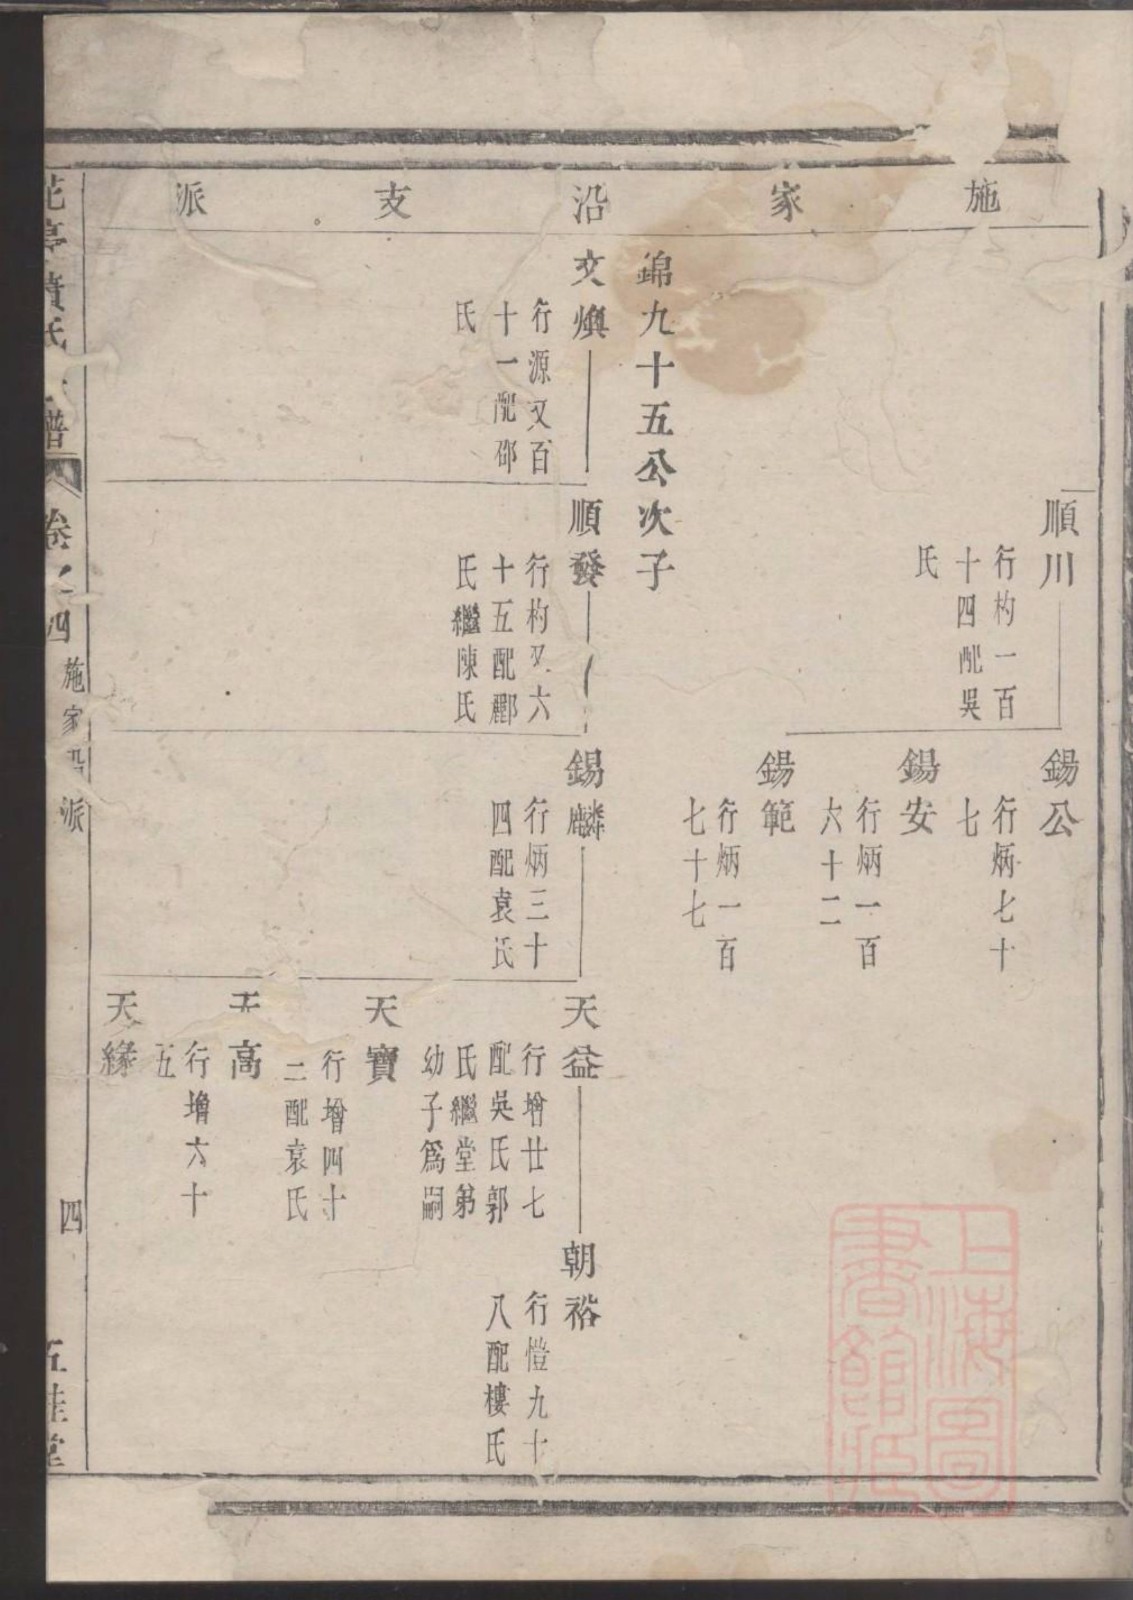 施家沿支派
順川
行杓一百
十四配吳
氏
錫公
行炳七十
七
錫安
行炳一百
六十二
錫範
行炳一百
七十七
錦九十五公次子
文煥
行源又百
十一配邵
氏
順發
行杓又六
十五配酈
氏繼陳氏
錫麟
行炳三十
四配袁氏
天益
行增廿七
配吳氏郭
氏繼堂弟
幼子爲嗣
朝裕
行愷九十
八配樓氏
天寶
行增四十
二配袁氏
天高
行增六十
五
天緣
譜
卷之四
施家沿派
四
五桂堂
上海圖
書館藏